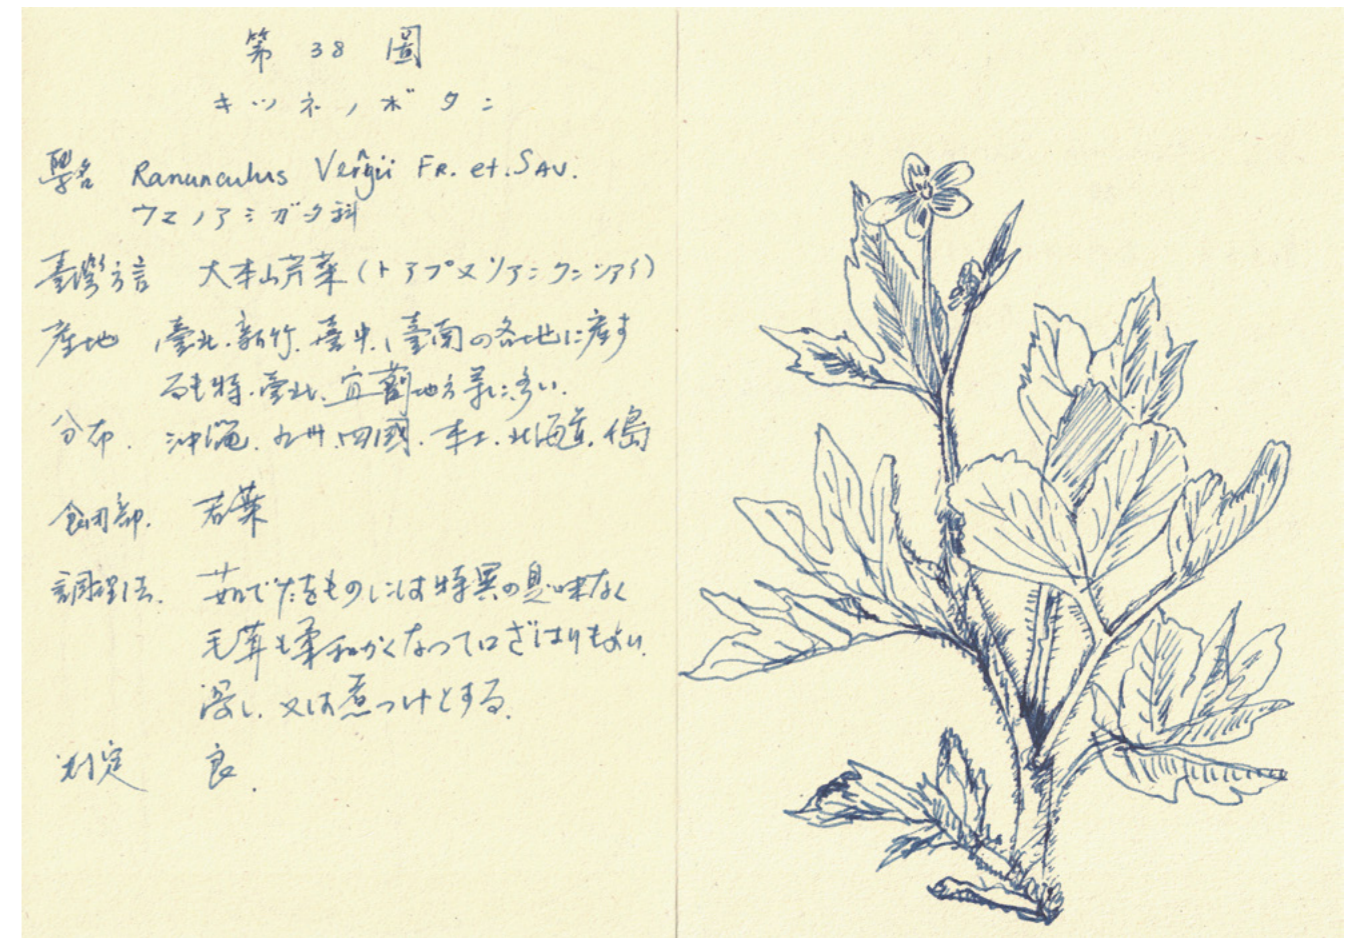 第 38 圖
キツネノボタン
學名 Ranunculus Vernyii FR. et. SAV.
ウマノアシガタ科
臺灣方言 大本山芹菜(トアプヌソアニクンツアイ)
産地 臺北.新竹.臺中、臺南の各地に産す
るも特.臺北、宜蘭地方等に多い.
分布. 沖縄.九州.四國.本土.北海道.
食用部. 若葉
調理法. 茹でたものには特異の臭味なく
毛茸も柔和かくなって口ざはりもよい.
浸し.又は煮つけとする.
判定 良.